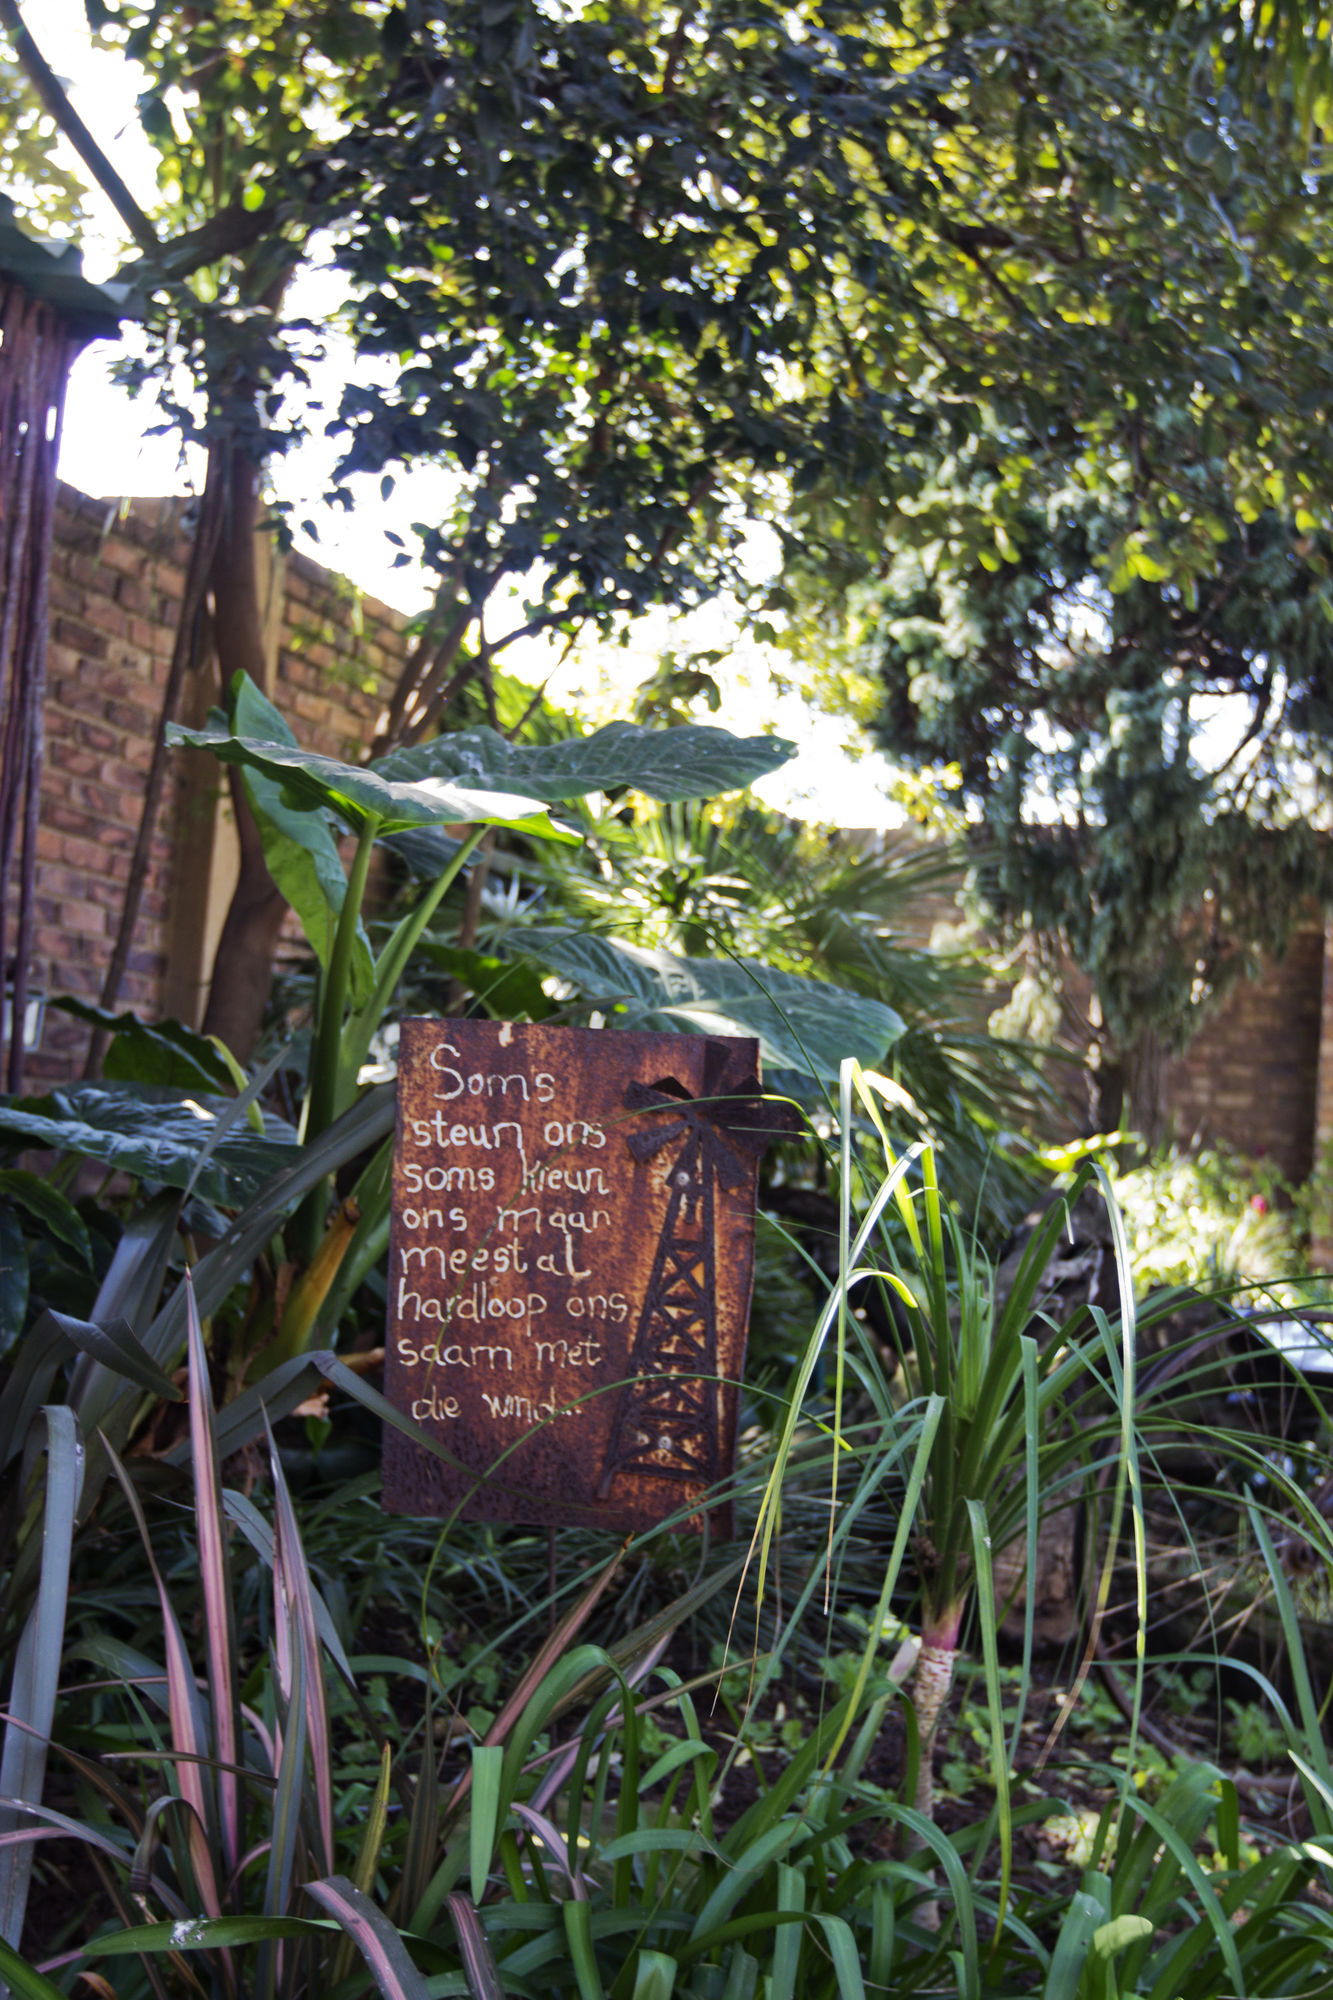 Soms
steun ons
soms kreun
ons maar
meestal
hardloop ons
saam met
die wind...